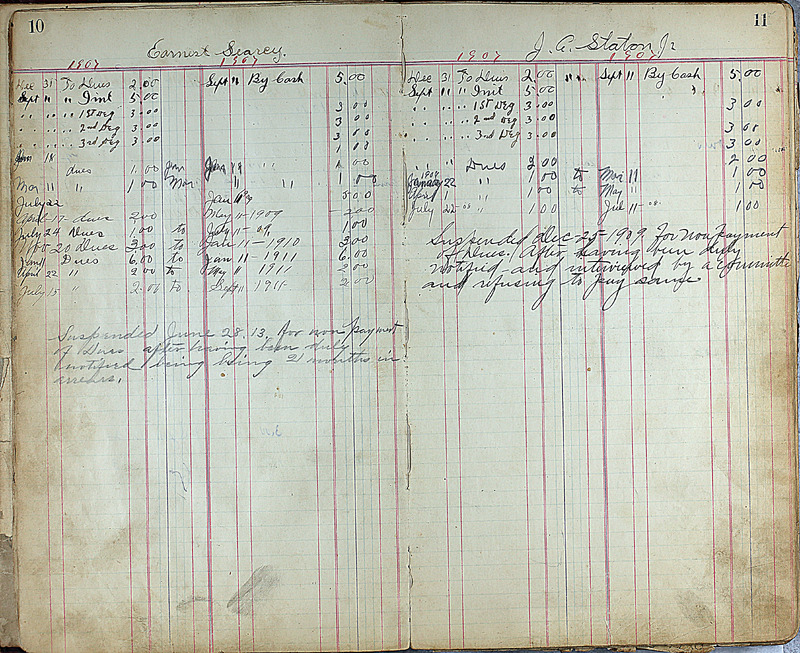 10
Earnest Searcy.
1907 1907
Dec 31 To Dues 2.00 Sept 11 By Cash 5.00
Sept 11 " Init 5.00
" " " " 1st Deg 3.00 3 00
" " " " 2nd Deg 3.00 3 00
" " " " 3rd Deg 3.00 3 00
18 1 00
Dues 1.00 Jan " " 1 00
Mar 11 " 1 00 Mar " " 1 00
July 22 Jan 11 5 00
April 17 - dues 2 00 May 11 - 1909 2 00
July 24 Dues 1.00 to July 11 - 09 1 00
20 Dues 3.00 to Jan 11 - 1910 3 00
Jan 11 Dues 6.00 to Jan 11 - 1911 6.00
April 22 " 2 00 to May 11 1911 2 00
July 15 " 2.00 to Sept 11 1911 2 00
Suspended June 28. 13. for non payment
of Dues after having been duly
notified being being 21 months in
arrears.
11
J. A. Staton Jr
1907 1907
Dec 31 To Dues 2.00 " " Sept 11 By Cash 5.00
Sept 11 " Init 5.00
" " " " 1st Deg 3.00 3 00
" " " " 2nd Deg 3.00 3 00
" " " " 3rd Deg 3.00 3 00
" " Dues 2 00 2 00
1908
January 22 " 1 00 to Mar 11 1 00
April 1 " 1 00 to May 11 1 00
July 22 - 08 " 1 00 Jul 11 - 08 1 00
Suspended Dec - 25 - 1909 for non payment
of Dues. After having been duly
notified and interviewed by a Committe
and refusing to pay same